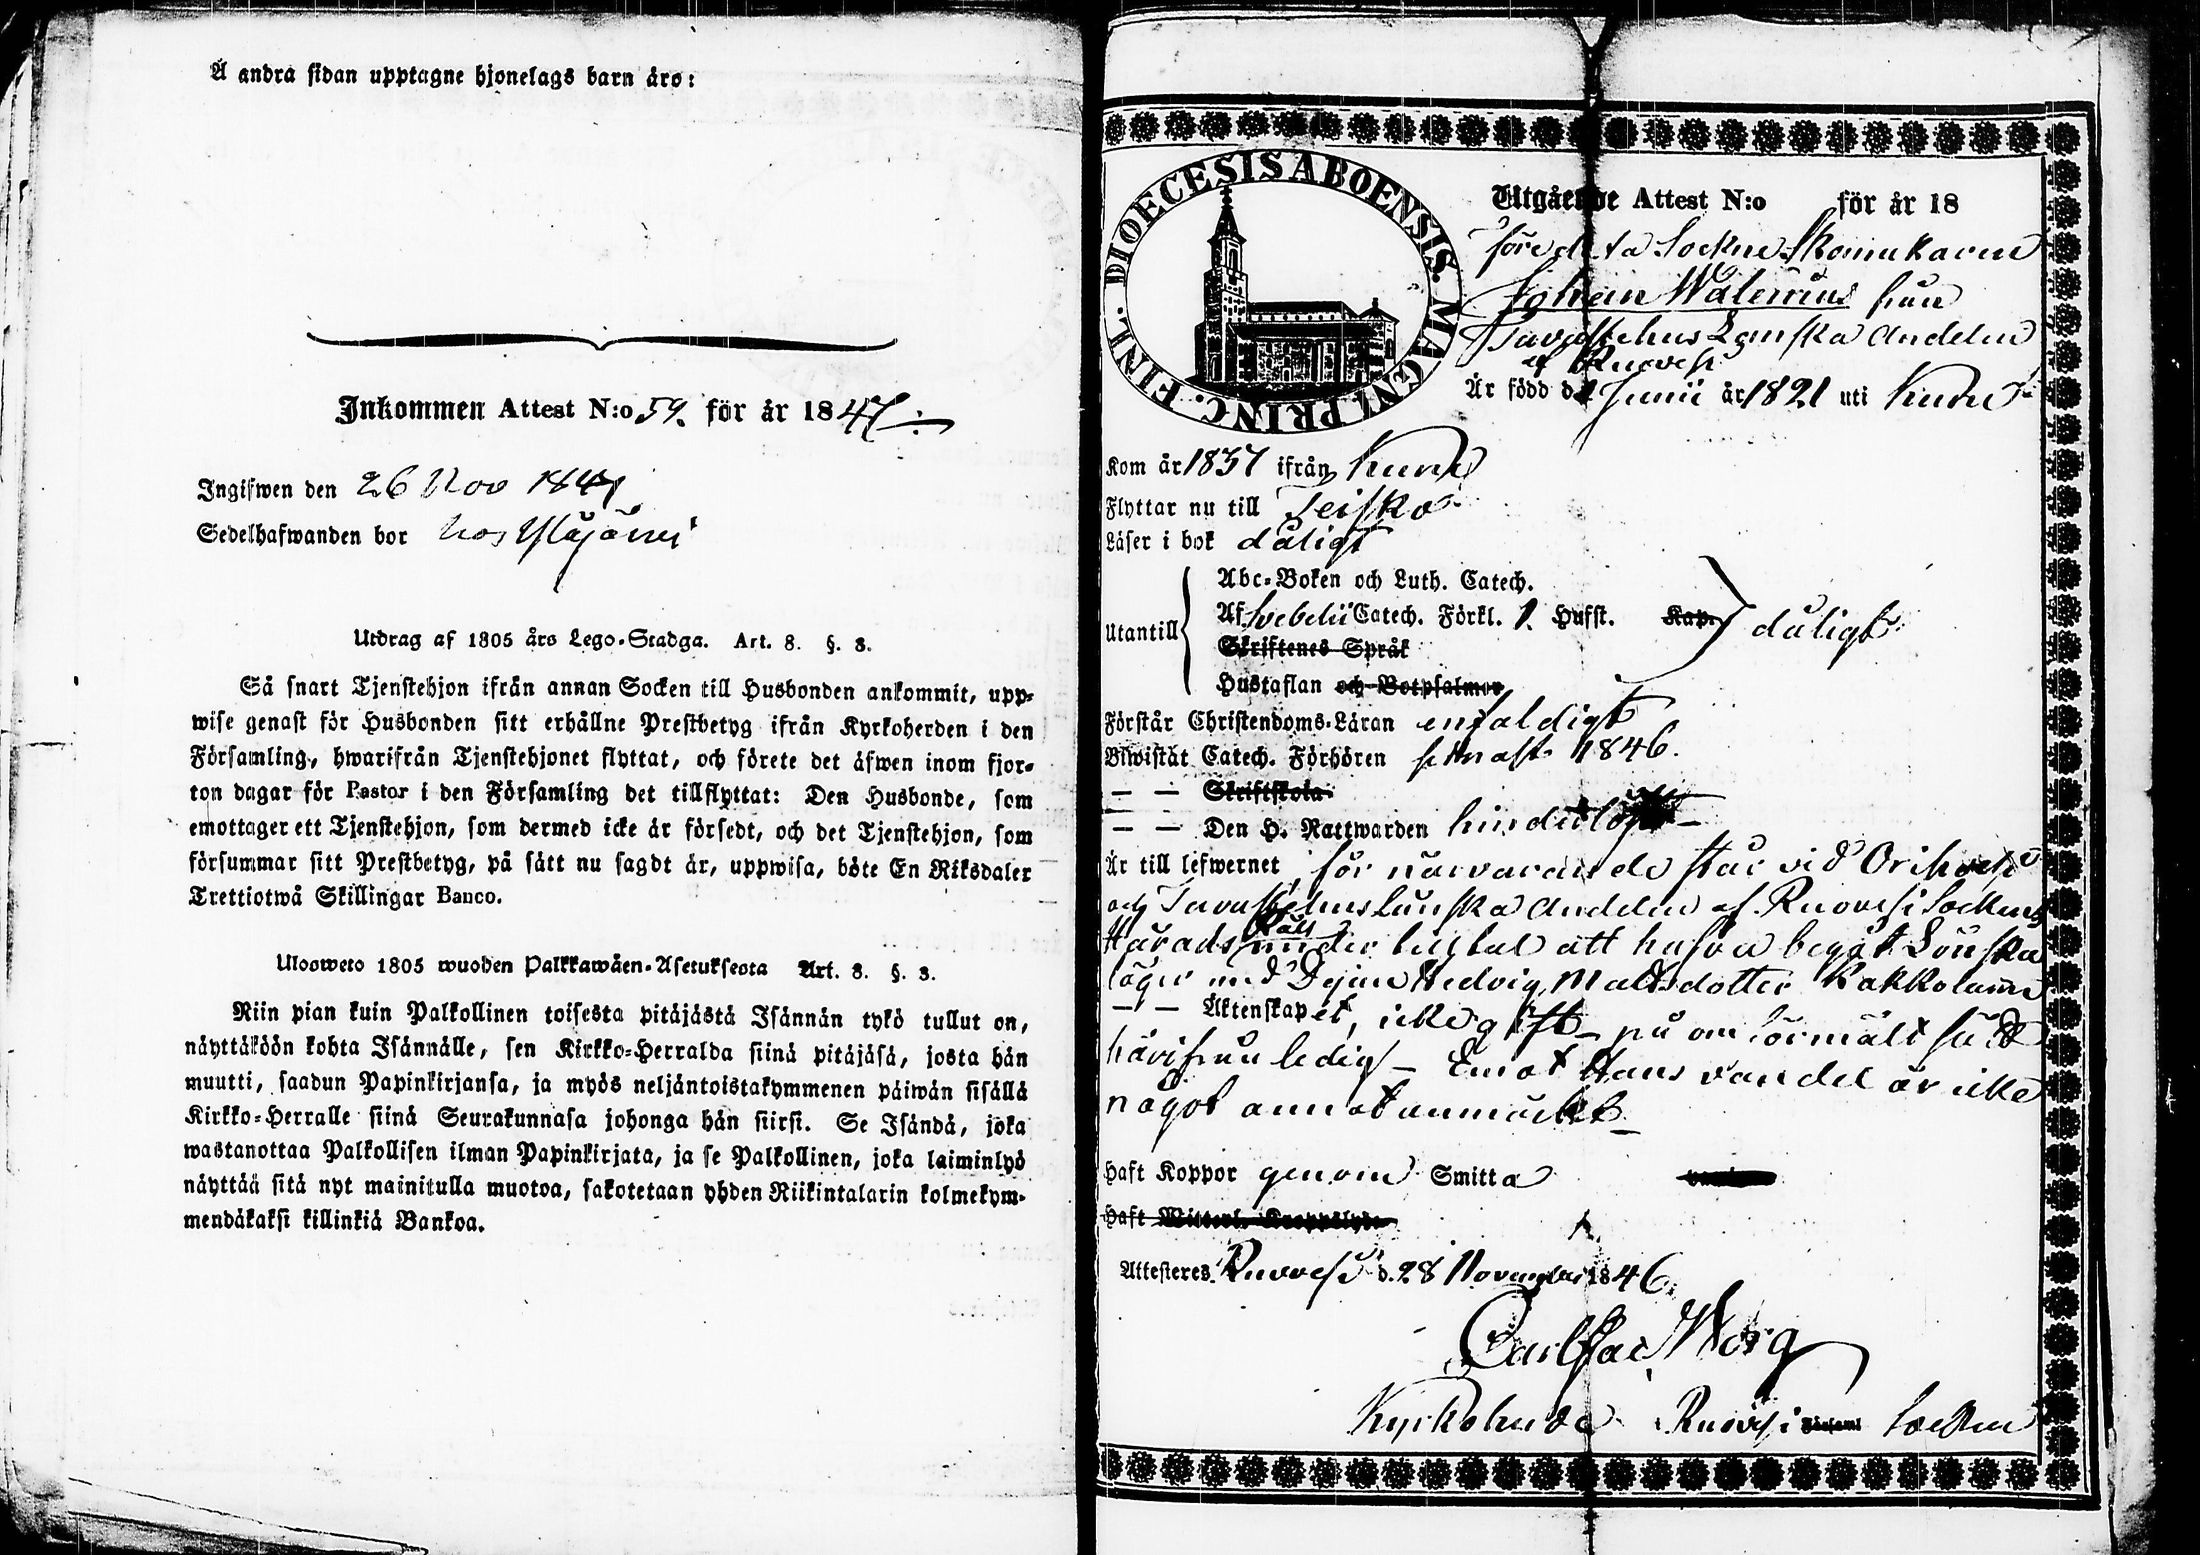 Å andra sidan upptagne hjonelags barn äro:
Inkommen Attest N:o 59. för år 1847
Ingifwen den 26 Nov 1847
Sedelhafwanden bor hos Ylājärvi
Utdrag af 1805 års Lego-Stadga. Art. 8. §. 3.
Så snart Tjenstehjon ifrån annan Socken till Husbonden ankommit, upp-
wise genast för Husbonden sitt erhållne Prestbetyg ifrån Kyrkoherden i den
Församling, hwarifrån Tjenstehjonet flyttat, och förete det äfwen inom fjor-
ton dagar för Pastor i den Församling det tillflyttat: Den Husbonde, som
emottager ett Tjenstehjon, som dermed icke är försedt, och det Tjenstehjon, som
försummar sitt Prestbetyg, på sätt nu sagdt är, uppwisa, böte En Riksdaler
Trettiotwå Skillingar Banco.
Ulosweto 1805 wuoden Palkkawäen-Asetuksesta Art. 8. §. 3.
Niin pian kuin Palkollinen toisesta pitäjästä Isännän tykö tullut on,
näyttäköön kohta Isännälle, sen Kirkko-Herralda siinä pitäjäsä, josta hän
muutti, saadun Papinkirjansa, ja myös neljäntoistakymmenen päiwän sisällä
Kirkko-Herralle siinä Seurakunnasa johonga hän siirsi. Se Isändä, joka
wastanottaa Palkollisen ilman Papinkirjata, ja se Palkollinen, joka laiminlyö
näyttää sitä nyt mainitulla muotoa, sakotetaan yhden Riikintalarin kolmekym-
mendäkaksi killinkiä Bankoa.
DIOECESIS ABOENSIS. MAGNI PRINC. FINL.
Utgående Attest N:o för år 18
Sockne Skomakaren
Johan Walenius från
Tavastehus Länska Andelen
af Ruovesi
Är född d. 1 Junii år 1821 uti Kuru
Kom år 1837 ifrån Kuru
Flyttar nu till Teisko
Läser i bok dåligt
Utantill
Abc-Boken och Luth. Catech.
Af Svebelii Catech. Förkl. 1. Hufst. Kap. dåligt
Skriftenes Språk
Hustaflan och Botpsalmer
Förstår Christendoms-Läran enfaldigt
Biwistat Catech. Förhören senast 1846.
— — Skriftskola
— — Den H. Nattwarden hinderlöst
Är till lefwernet, för närvarande står vid Orihvesi
och Tavastehus Länska Andelen af Ruovesi Sockens
Härads Rätt under tilltal att hafva begått Lönska
läger med Pigan Hedvig Mattsdotter Kakkolamme
— — Äktenskapet, icke gift på om förmält sätt
härifrån ledig — Emot Hans vandel är icke
något annat anmärkt
Haft Koppor genom Smitta
Haft
Attesteres Ruovesi d. 28 November 1846.
Carl Isac Worg
Kyrkoherde i Ruovesi Församl. Socken